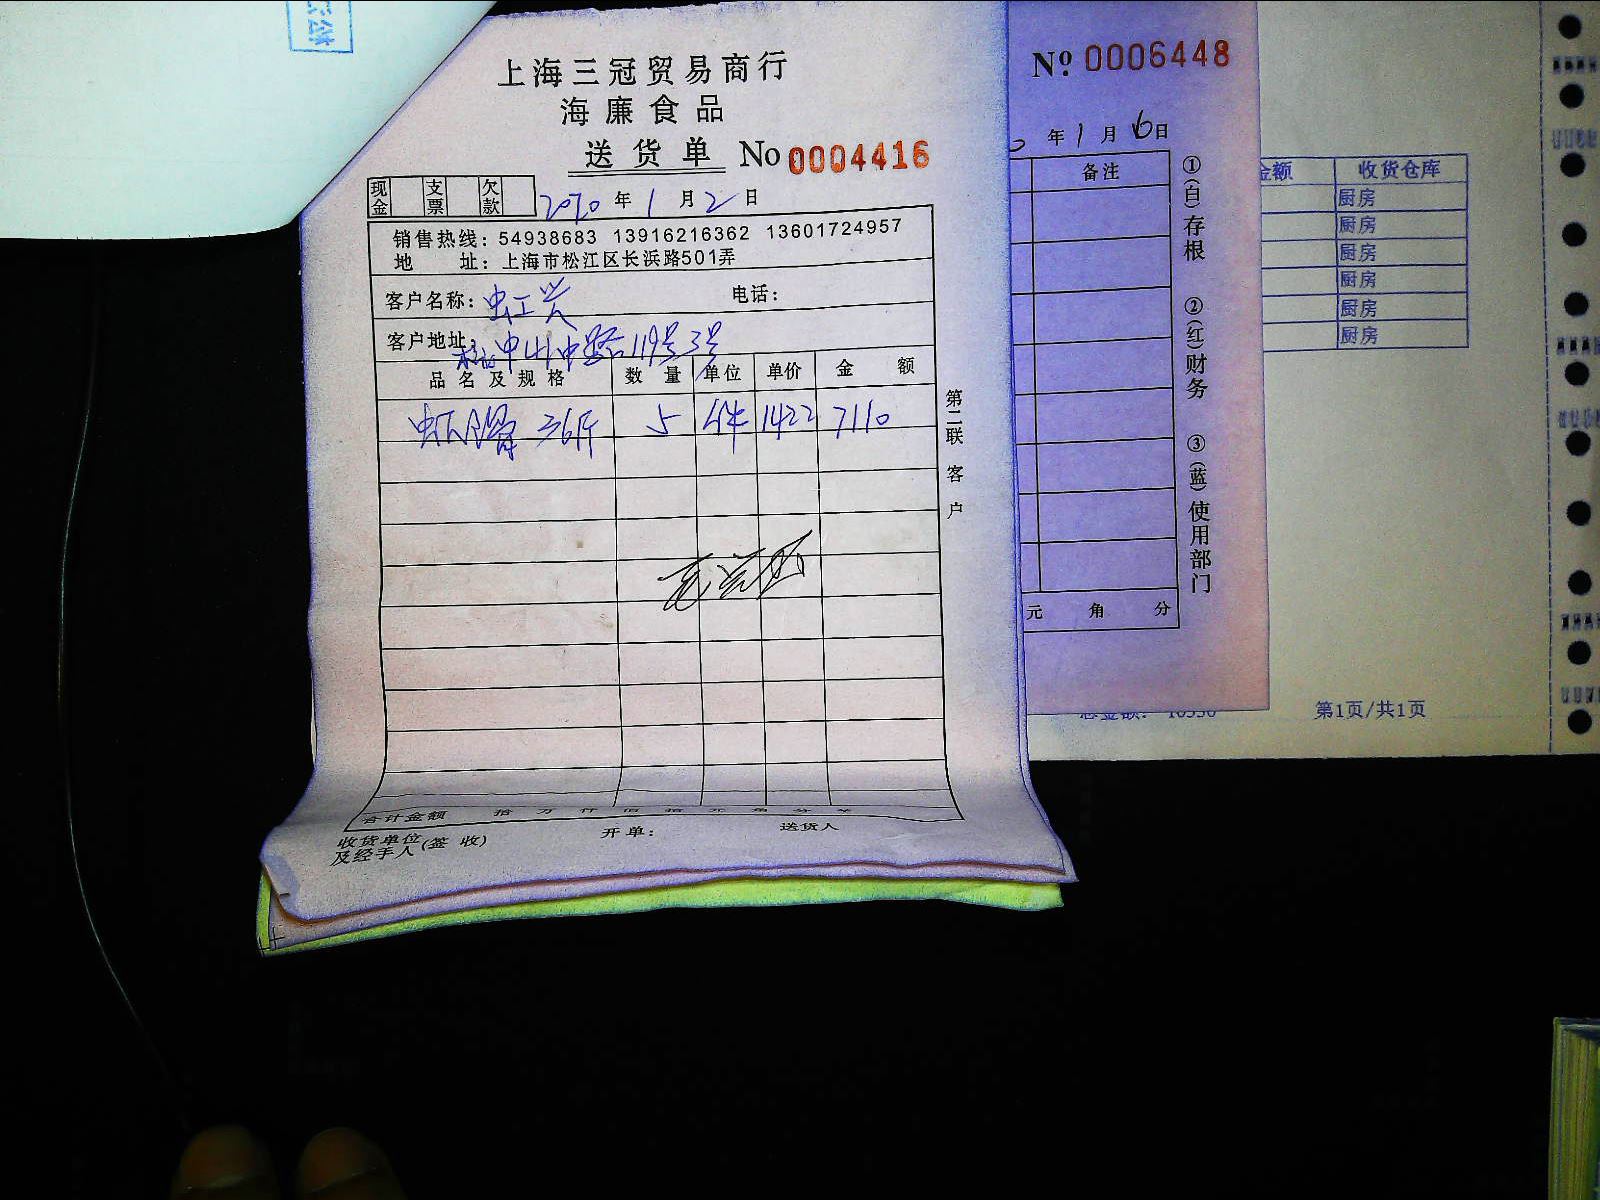 上海三冠贸易商行
海廉食品
送货单 No 0004416
现金 支票 欠款 2020年1月2日
销售热线：54938683 13916216362 13601724957
地 址：上海市松江区长浜路501弄
客户名称：虹兴 电话：
客户地址：中山中路119号3号
品名及规格 数量 单位 单价 金额
36斤 5 件 1422 7110
第二联 客户
合计金额 拾 万 仟 佰 拾 元 角 分
收货单位及经手人(签收) 开单： 送货人
No. 0006448
年1月6日
备注
元 角 分
①(白)存根 ②(红)财务 ③(蓝)使用部门
金额 收货仓库
厨房
厨房
厨房
厨房
厨房
厨房
第1页/共1页